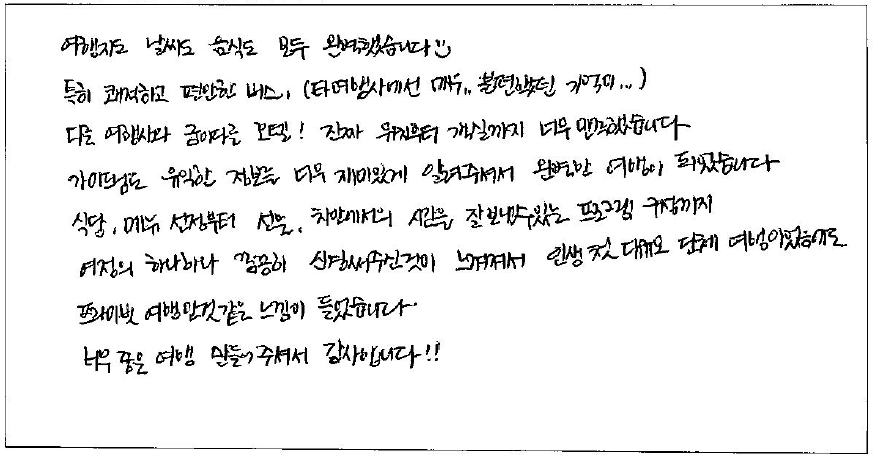 여행지도 날씨도 음식도 모두 완벽했습니다
특히 쾌적하고 편안한 버스, (타여행사에선 매우.. 불편했던 기억이...)
다른 여행사와 급이다른 모텔! 진짜 위치부터 객실까지 너무 만족했습니다
가이드님도 유익한 정보를 너무 재미있게 알려주셔서 완벽한 여행이 되었습니다
식당, 메뉴 선정부터 선물, 차안에서의 시간을 잘보낼수있는 프로그램 구성까지
여정의 하나하나 꼼꼼히 신경써주신것이 느껴져서 인생 첫 대규모 단체 여행이었음에도
프라이빗 여행만같은 느낌이 들었습니다.
너무 좋은 여행 만들어주셔서 감사합니다!!